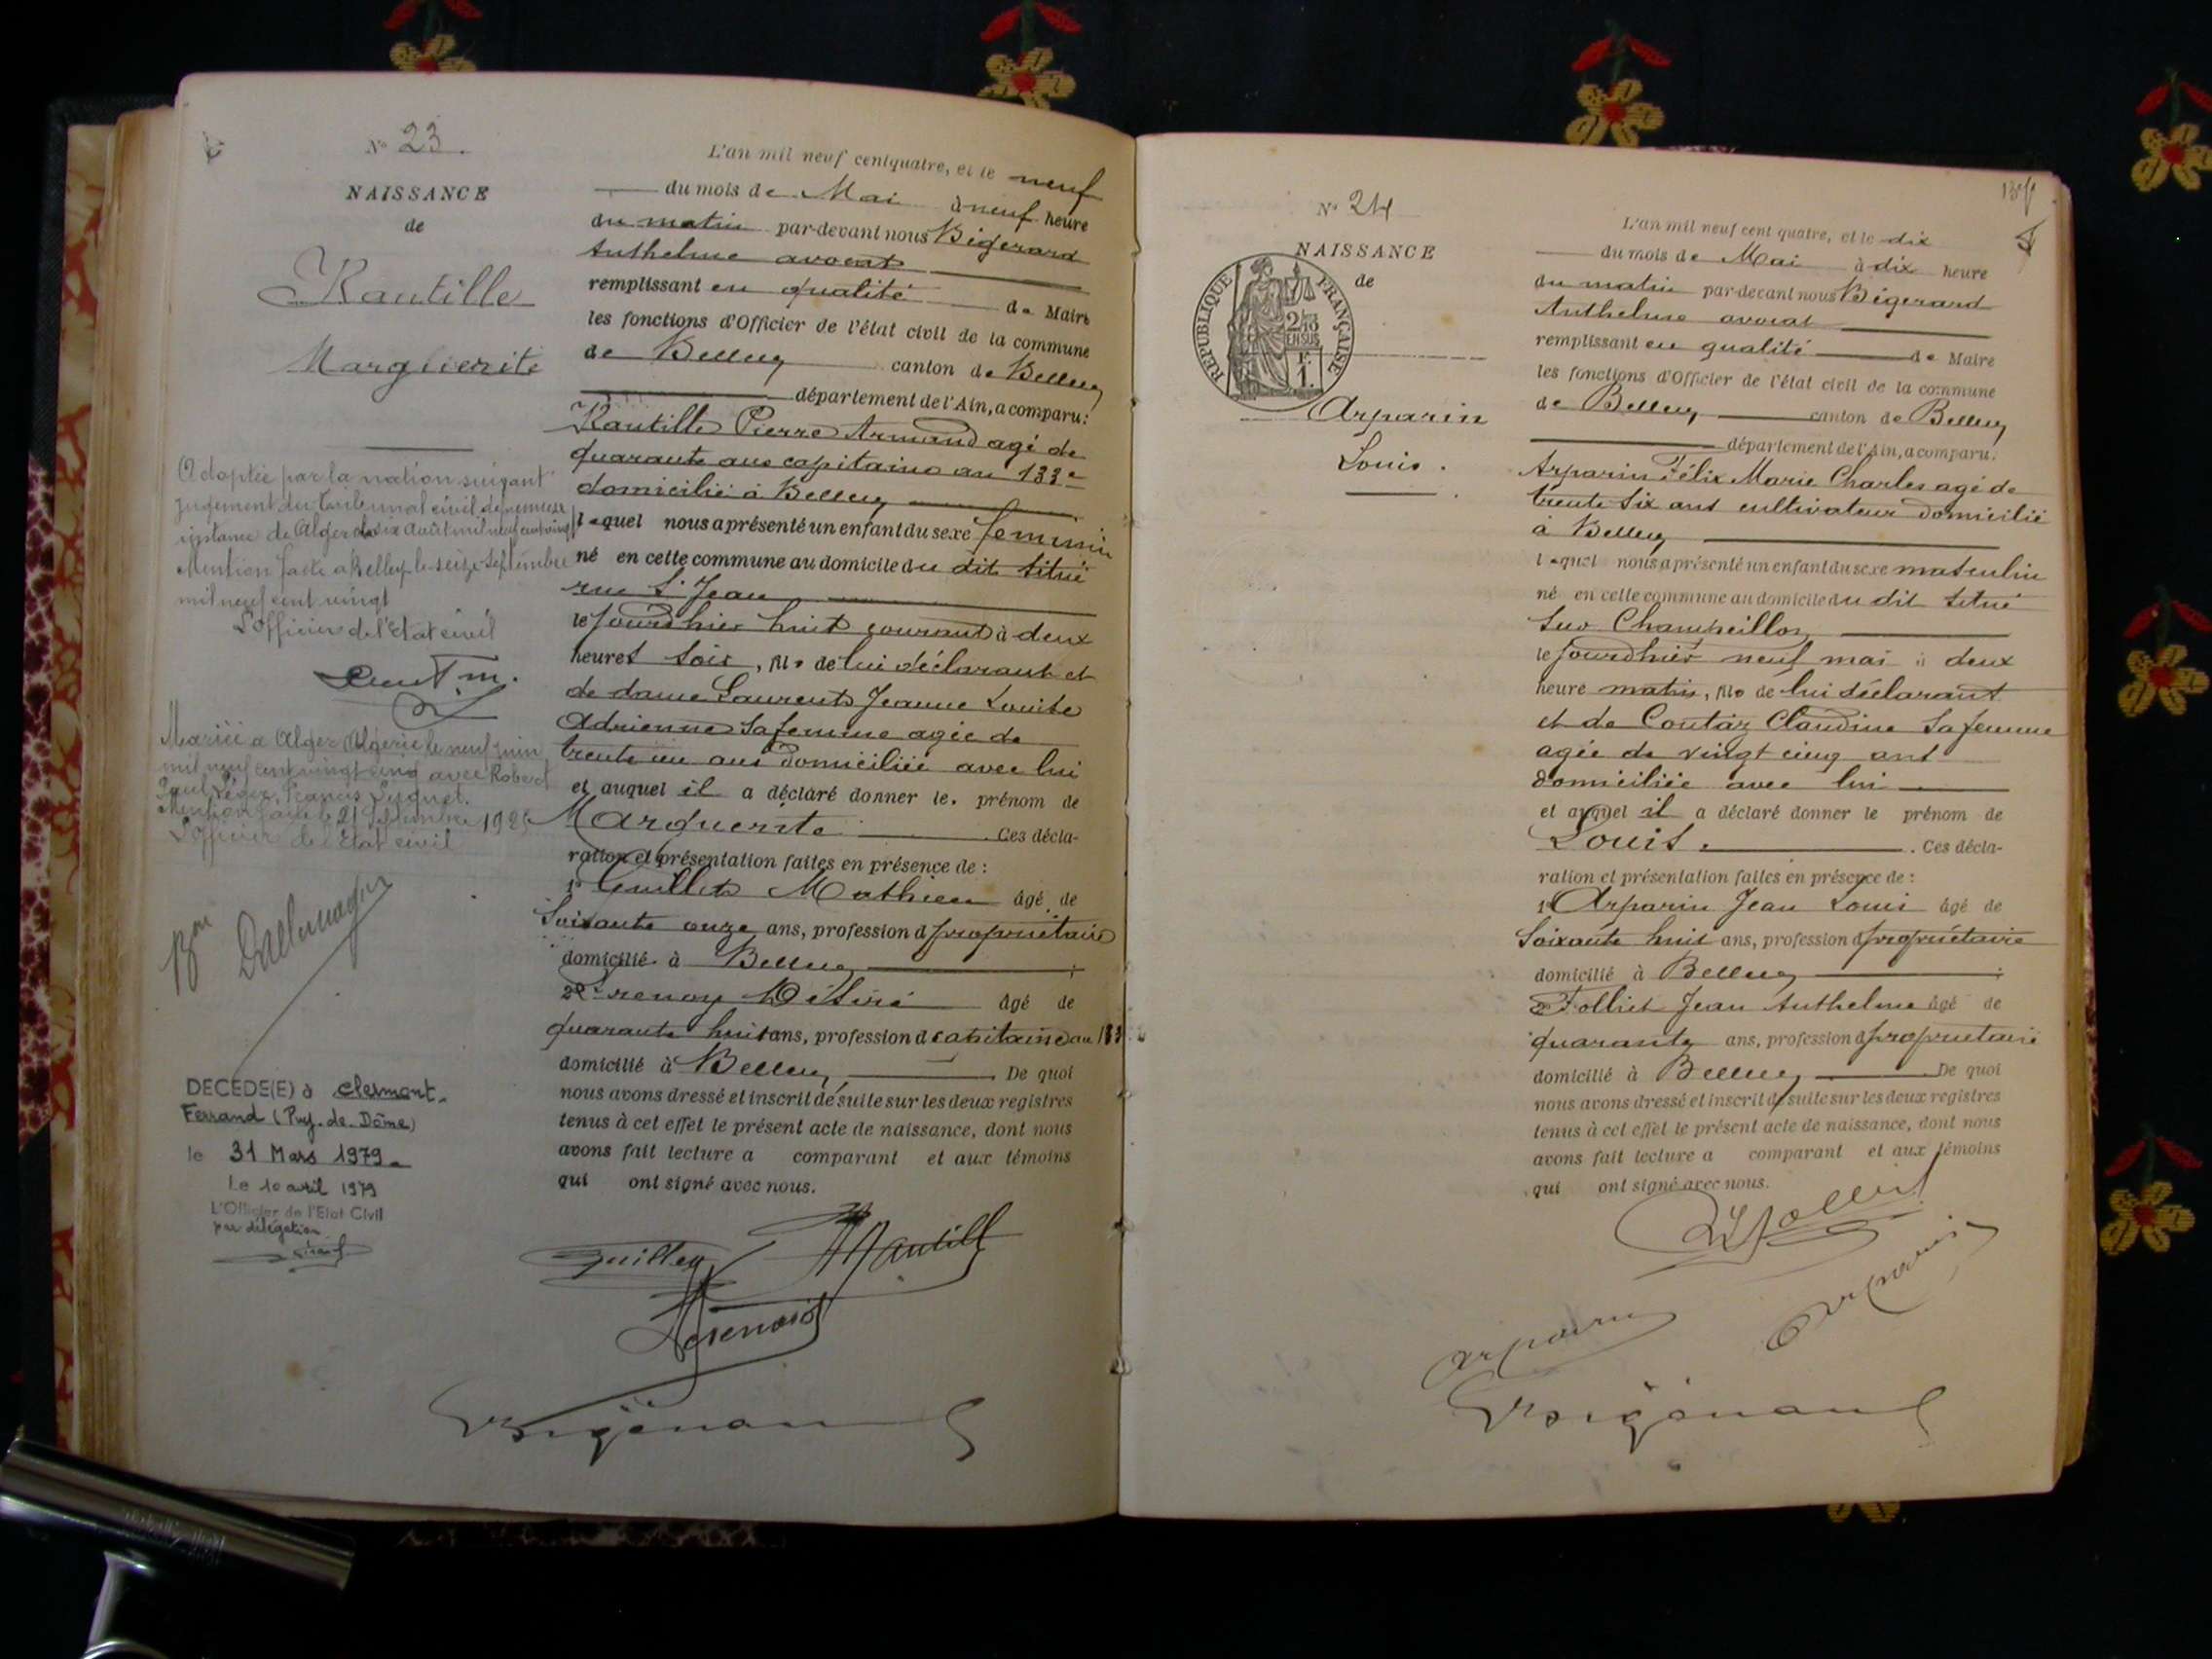 N° 23.
NAISSANCE
de
Rantille
Marguerite
Adoptée par la nation suivant
jugement du tribunal civil de première
instance de Alger du dix août mil neuf cent vingt
Mention faite à Belley le seize Septembre
mil neuf cent vingt
L'officier de l'état civil
Mariée à Alger Algérie le neuf juin
mil neuf cent vingt cinq avec Robert
Paul Léger, Francis
Mention faite le 21 Septembre 192
L'officier de l'Etat civil
DECEDE(E) à Clermont-
Ferrand (Puy-de-Dôme)
le 31 Mars 1979
Le 10 avril 1979
L'Officier de l'Etat Civil
par délégation
L'an mil neuf cent quatre, et le neuf
du mois de Mai à neuf heure
du matin par-devant nous Bigerard
Anthelme avocat
remplissant en qualité de Maire
les fonctions d'Officier de l'état civil de la commune
de Belley canton de Belley
département de l'Ain, a comparu:
Rantille Pierre Armand agé de
quarante ans capitaine au 133e
domicilié à Belley
lequel nous a présenté un enfant du sexe feminin
né en cette commune au domicile du dit situé
rue St Jean
le jourd'hier huit courant à deux
heures soir, fils de lui déclarant et
de dame Laurent Jeanne Louise
Adrienne sa femme agée de
trente un ans domiciliée avec lui
et auquel il a déclaré donner le. prénom de
Marguerite . Ces décla-
ration et présentation faites en présence de :
1° Guillet Mathieu âgé de
Soixante onze ans, profession d propriétaire
domicilié à Belley ;
2° Grenoy Désiré âgé de
quarante huit ans, profession d capitaine au 133
domicilié à Belley . De quoi
nous avons dressé et inscrit de suite sur les deux registres
tenus à cet effet le présent acte de naissance, dont nous
avons fait lecture a comparant et aux témoins
qui ont signé avec nous.
Bigerard
N° 24
NAISSANCE
de
REPUBLIQUE FRANÇAISE
2/10
EN SUS
F.
1.
Arparin
Louis.
L'an mil neuf cent quatre, et le dix
du mois de Mai à dix heure
du matin par-devant nous Bigerard
Anthelme avocat
remplissant en qualité de Maire
les fonctions d'Officier de l'état civil de la commune
de Belley canton de Belley
département de l'Ain, a comparu:
Arparin Félix Marie Charles agé de
trente six ans cultivateur domicilié
à Belley
lequel nous a présenté un enfant du sexe masculin
né en cette commune au domicile du dit situé
Sur Champeillon
le jourd'hier neuf mai à deux
heure matin, fils de lui déclarant
et de Coutaz Claudine sa femme
agée de vingt cinq ans
domiciliée avec lui
et auquel il a déclaré donner le prénom de
Louis. . Ces décla-
ration et présentation faites en présence de :
1° Arparin Jean Louis âgé de
Soixante huit ans, profession d propriétaire
domicilié à Belley ;
2° Folliet Jean Anthelme âgé de
quarante ans, profession d propriétaire
domicilié à Belley . De quoi
nous avons dressé et inscrit de suite sur les deux registres
tenus à cet effet le présent acte de naissance, dont nous
avons fait lecture a comparant et aux témoins
qui ont signé avec nous.
Arparin
Arparin
Bigerard